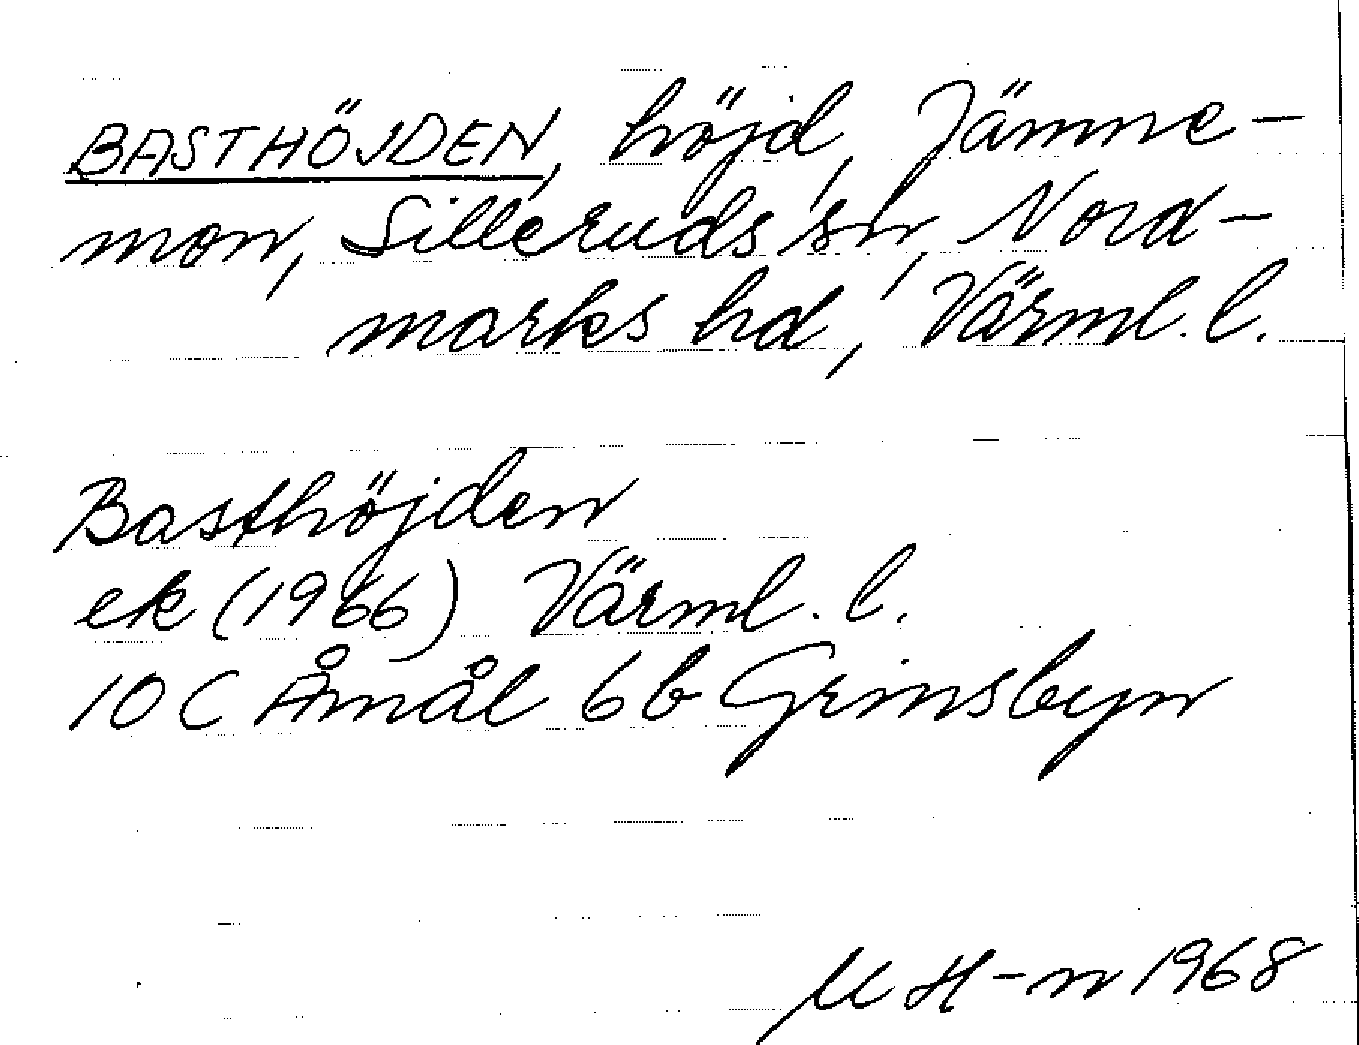 BASTHÖJDEN, höjd, Jämne-
mon, Silleruds sn, Nord-
marks hd, Värml. l.
Basthöjden
ek (1966) Värml. l.
10 C Åmål 6 b Grinsbyn
M H-n 1968